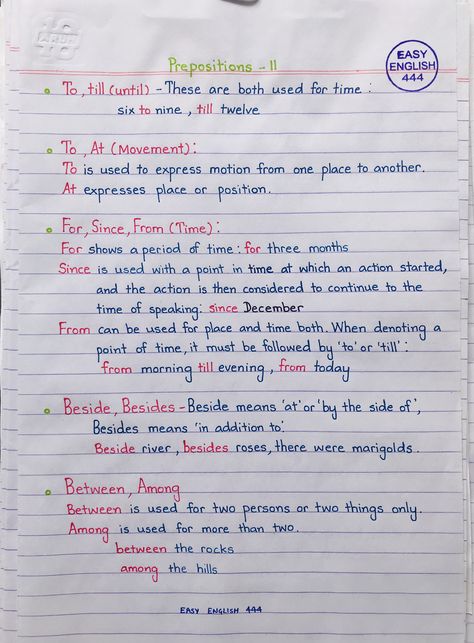 EASY
ENGLISH
444
Prepositions - 11
To, till (until) - These are both used for time :
six to nine , till twelve
To , At (Movement) :
To is used to express motion from one place to another.
At expresses place or position.
For, Since, From (Time) :
For shows a period of time : for three months
Since is used with a point in time at which an action started,
and the action is then considered to continue to the
time of speaking: since December
From can be used for place and time both. When denoting a
point of time, it must be followed by 'to' or 'till' :
from morning till evening , from today
Beside, Besides - Beside means 'at' or 'by the side of',
Besides means 'in addition to'.
Beside river, besides roses, there were marigolds.
Between, Among
Between is used for two persons or two things only.
Among is used for more than two.
between the rocks
among the hills
EASY ENGLISH 444